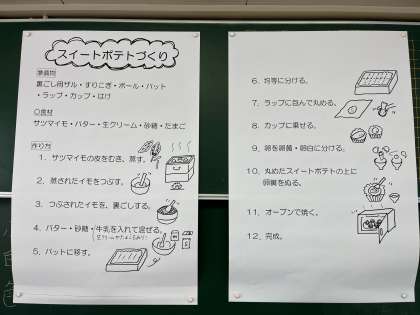 スイートポテトづくり
準備物
裏ごし用ザル・すりこぎ・ボール・バット
・ラップ・カップ・はけ
◎食材
サツマイモ・バター・生クリーム・砂糖・たまご
作り方
1．サツマイモの皮をむき、蒸す。
2．蒸されたイモをつぶす。
3．つぶされたイモを、裏ごしする。
4．バター・砂糖・牛乳を入れて混ぜる。
5．バットに移す。
6．均等に分ける。
7．ラップに包んで丸める。
8．カップに乗せる。
9．卵を卵黄・卵白に分ける。
10．丸めたスイートポテトの上に
卵黄をぬる。
11．オーブンで焼く。
12．完成。